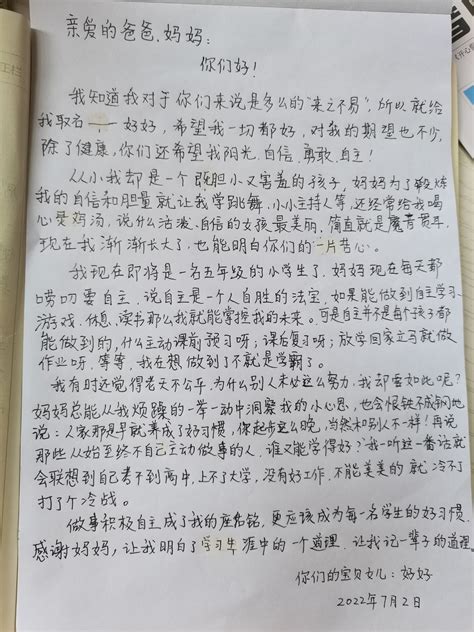 亲爱的爸爸、妈妈:
你们好!
我知道我对于你们来说是多么的“来之不易”,所以就给
我取名——好好,希望我一切都好,对我的期望也不少,
除了健康,你们还希望我阳光、自信、勇敢、自主!
从小我却是一个既胆小又害羞的孩子,妈妈为了锻炼
我的自信和胆量就让我学跳舞、小小主持人等,还经常给我喝
心灵鸡汤,说什么活泼、自信的女孩最美丽,简直就是魔音贯耳,
现在我渐渐长大了,也能明白你们的一片苦心。
我现在即将是一名五年级的小学生了,妈妈现在每天都
唠叨要自主,说自主是一个人自胜的法宝,如果能做到自主学习、
游戏、休息、读书那么我就能掌握我的未来。可是自主并不是每个孩子都
能做到的,什么主动课前预习呀;课后复习呀;放学回家立马就做
作业呀,等等,我在想做到了不就是学霸了。
我有时还觉得老天不公平,为什么别人未必这么努力,我却要如此呢?
妈妈总能从我烦躁的一举一动中洞察我的小心思,也会恨铁不成钢地
说:人家那是早就养成了好习惯,你起步这么晚,当然和别人不一样!再说
那些从始至终不自己主动做事的人,谁又能学得好?我一听这一番话就
会联想到自己考不到高中,上不了大学,没有好工作,不能美美的就冷不丁
打了个冷战。
做事积极自主成了我的座右铭,更应该成为每一名学生的好习惯,
感谢妈妈,让我明白了学习生涯中的一个道理,让我记一辈子的道理
你们的宝贝女儿:好好
2022年7月2日